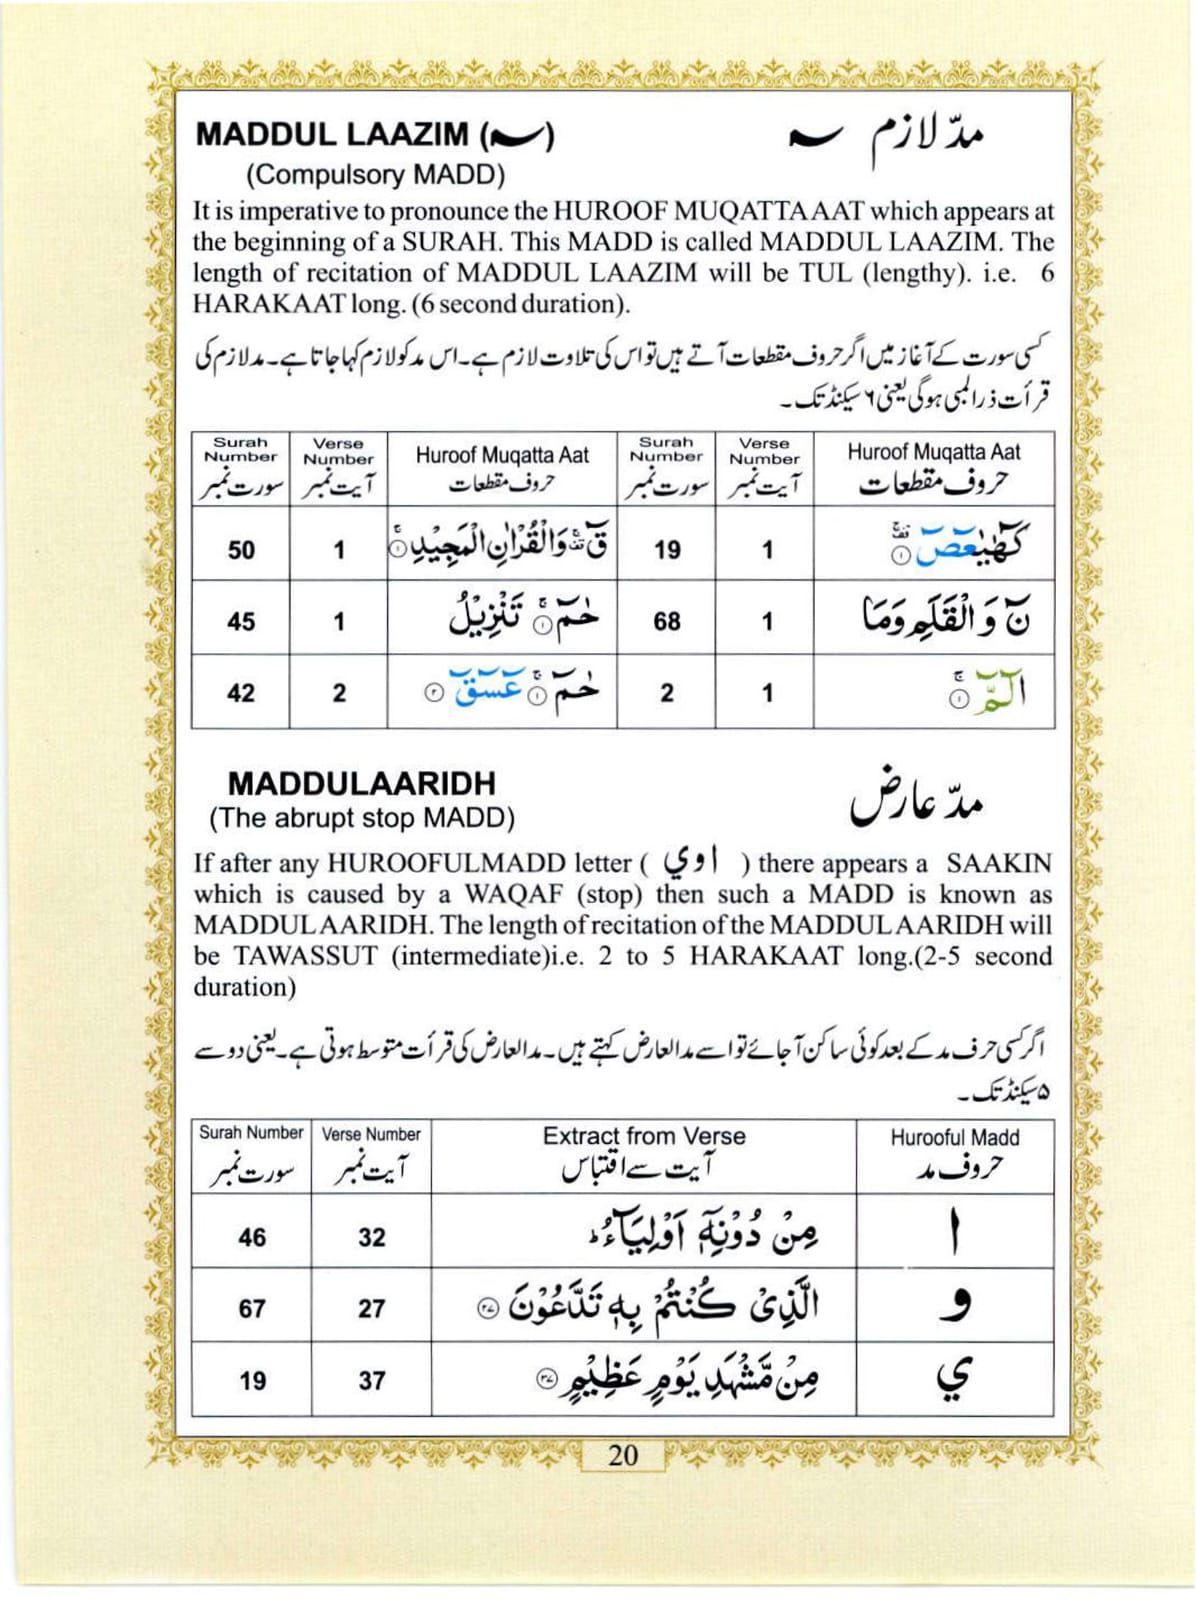 MADDUL LAAZIM (~)
مدّ لازم ~
(Compulsory MADD)
It is imperative to pronounce the HUROOF MUQATTAAAT which appears at
the beginning of a SURAH. This MADD is called MADDUL LAAZIM. The
length of recitation of MADDUL LAAZIM will be TUL (lengthy). i.e. 6
HARAKAAT long. (6 second duration).
کسی سورت کے آغاز میں اگر حروف مقطعات آتے ہیں تو اس کی تلاوت لازم ہے۔ اس مد کو لازم کہا جاتا ہے۔ مد لازم کی
قرأت ذرا لمبی ہوگی یعنی ۶ سیکنڈ تک۔
Surah Number سورت نمبر | Verse Number آیت نمبر | Huroof Muqatta Aat حروف مقطعات | Surah Number سورت نمبر | Verse Number آیت نمبر | Huroof Muqatta Aat حروف مقطعات
50 | 1 | قٓ ۚ وَالْقُرْاٰنِ الْمَجِيْدِ ۚ ۱ | 19 | 1 | كٓهٰيٰعٓصٓ ۱
45 | 1 | حٰمٓ ۚ ۱ تَنْزِيْلُ | 68 | 1 | نٓ وَالْقَلَمِ وَمَا
42 | 2 | حٰمٓ ۚ ۱ عٓسٓقٓ ۲ | 2 | 1 | الٓمّٓ ۚ ۱
MADDULAARIDH
مدّ عارض
(The abrupt stop MADD)
If after any HUROOFULMADD letter ( ا و ي ) there appears a SAAKIN
which is caused by a WAQAF (stop) then such a MADD is known as
MADDULAARIDH. The length of recitation of the MADDULAARIDH will
be TAWASSUT (intermediate)i.e. 2 to 5 HARAKAAT long.(2-5 second
duration)
اگر کسی حرف مد کے بعد کوئی ساکن آجائے تو اسے مدالعارض کہتے ہیں۔ مدالعارض کی قرأت متوسط ہوتی ہے۔ یعنی دو سے
۵ سیکنڈ تک۔
Surah Number سورت نمبر | Verse Number آیت نمبر | Extract from Verse آیت سے اقتباس | Hurooful Madd حروف مد
46 | 32 | مِنْ دُوْنِهٖٓ اَوْلِيَآءُ ؕ | ا
67 | 27 | الَّذِىْ كُنْتُمْ بِهٖ تَدَّعُوْنَ ۲۷ | و
19 | 37 | مِنْ مَّشْهَدِ يَوْمٍ عَظِيْمٍ ۳۷ | ي
20